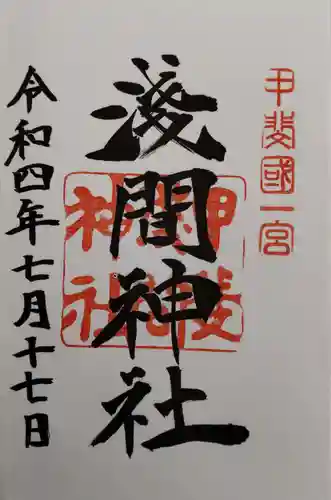 甲斐國一宮
淺間神社
令和四年七月十七日